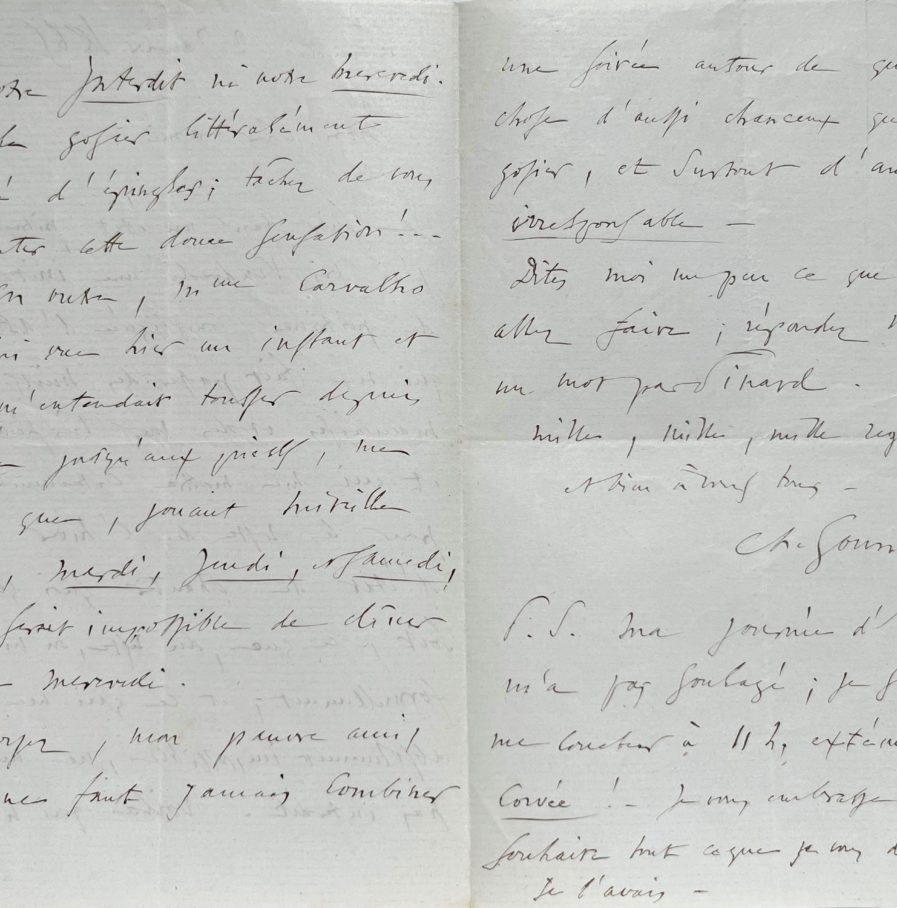 Interdit ni notre Mercredi.
gosier littéralement
d'épingles ; tâchez de vous
cette douce sensation ! . . .
En outre, Mme Carvalho
vue hier un instant et
m'entendait tousser depuis
jusqu'aux pieds, me
que, jouant Mireille
, Mardi, Jeudi, et Samedi,
serait impossible de dîner
mercredi.
, mon pauvre ami,
ne faut jamais combiner
une soirée autour de
chose d'aussi chanceux
gosier, et surtout d'au
irresponsable —
Dites moi un peu ce que
allez faire ; répondez
un mot par Dinard.
mille, mille, mille reg
et bien à vous tous —
Ch. Goun
P. S. Ma journée d'
m'a pas soulagé ; je
me coucher à 11 h, exténu
Corvée ! — Je vous embrasse
souhaite tout ce que je vous d
Je l'avais —